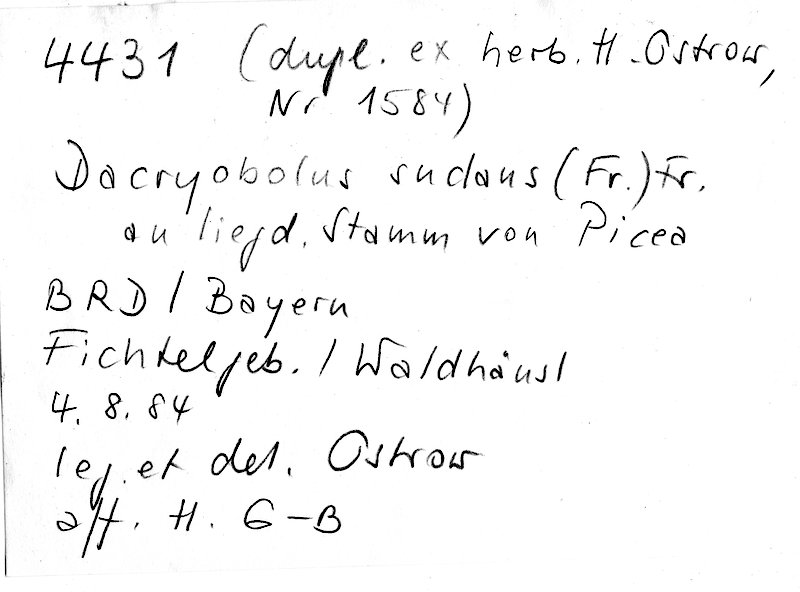 4431 (dupl. ex herb. H. Ostrow,
Nr 1584)
Dacryobolus sudans (Fr.) Fr.
an liegd. Stamm von Picea
BRD / Bayern
Fichtelgeb. / Waldhäusl
4. 8. 84
leg. et det. Ostrow
aff. H. G-B